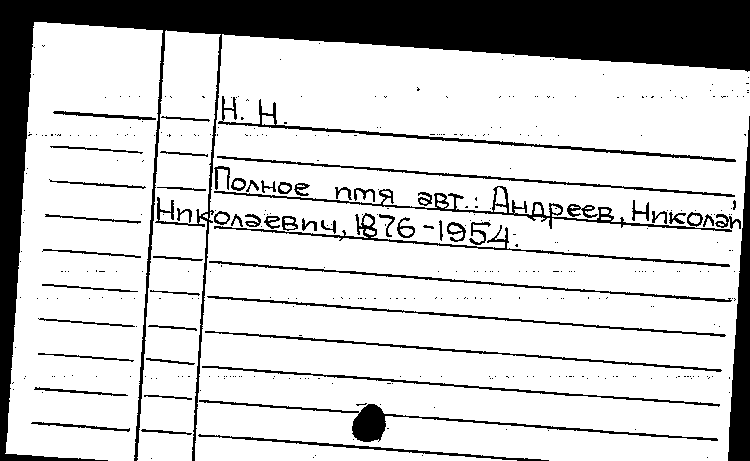 Н. Н.
Полное имя авт.: Андреев, Николай
Николаевич, 1876-1954.